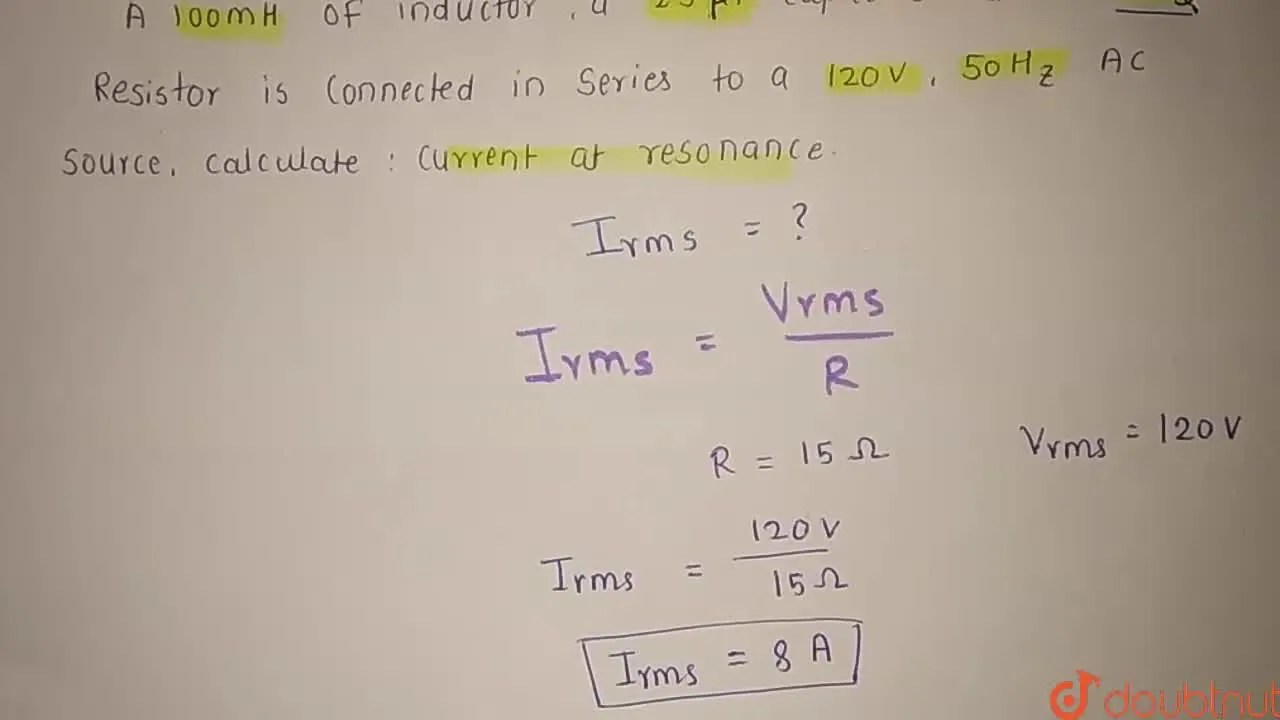 A 100mH of inductor, a
Resistor is Connected in Series to a 120V, 50Hz AC
Source, calculate : Current at resonance.
Irms = ?
Irms = Vrms
R
R = 15 Ω
Vrms = 120V
Irms = 120V
15Ω
Irms = 8 A
doubtnut